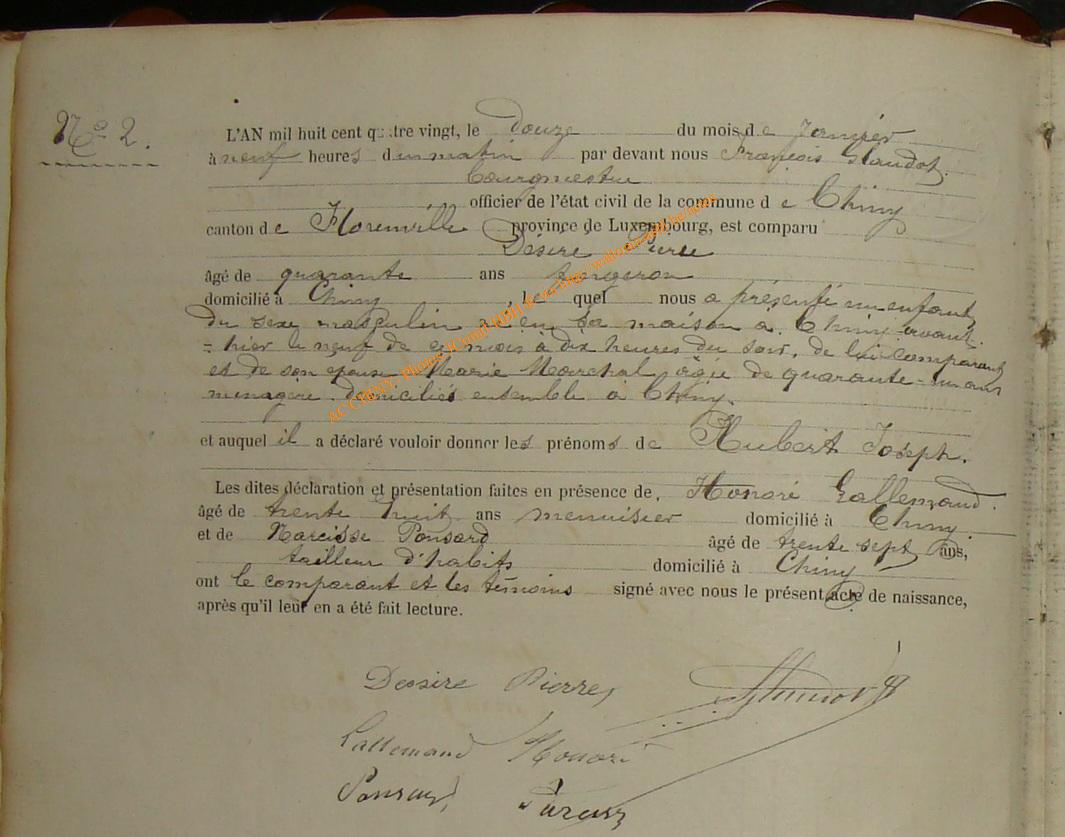 No 2.
L'AN mil huit cent quatre vingt, le douze du mois de Janvier
à neuf heures du matin par devant nous François Claudot,
bourgmestre
officier de l'état civil de la commune de Chiny
canton de Florenville province de Luxembourg, est comparu
Désiré Pierre
âgé de quarante ans forgeron
domicilié à Chiny, le quel nous a présenté un enfant
du sexe masculin né en sa maison à Chiny avant-
=hier le neuf de ce mois à dix heures du soir, de lui comparant
et de son épouse Marie Marchal âgée de quarante-un ans
ménagère domiciliés ensemble à Chiny.
et auquel il a déclaré vouloir donner les prénoms de Hubert Joseph.
Les dites déclaration et présentation faites en présence de, Honoré Lallemand
âgé de trente huit ans menuisier domicilié à Chiny
et de Narcisse Ponsard âgé de trente sept ans,
tailleur d'habits domicilié à Chiny
ont le comparant et les témoins signé avec nous le présent acte de naissance,
après qu'il leur en a été fait lecture.
Dessire Pierre
Lallemand Honoré
AC CHINY, Photos